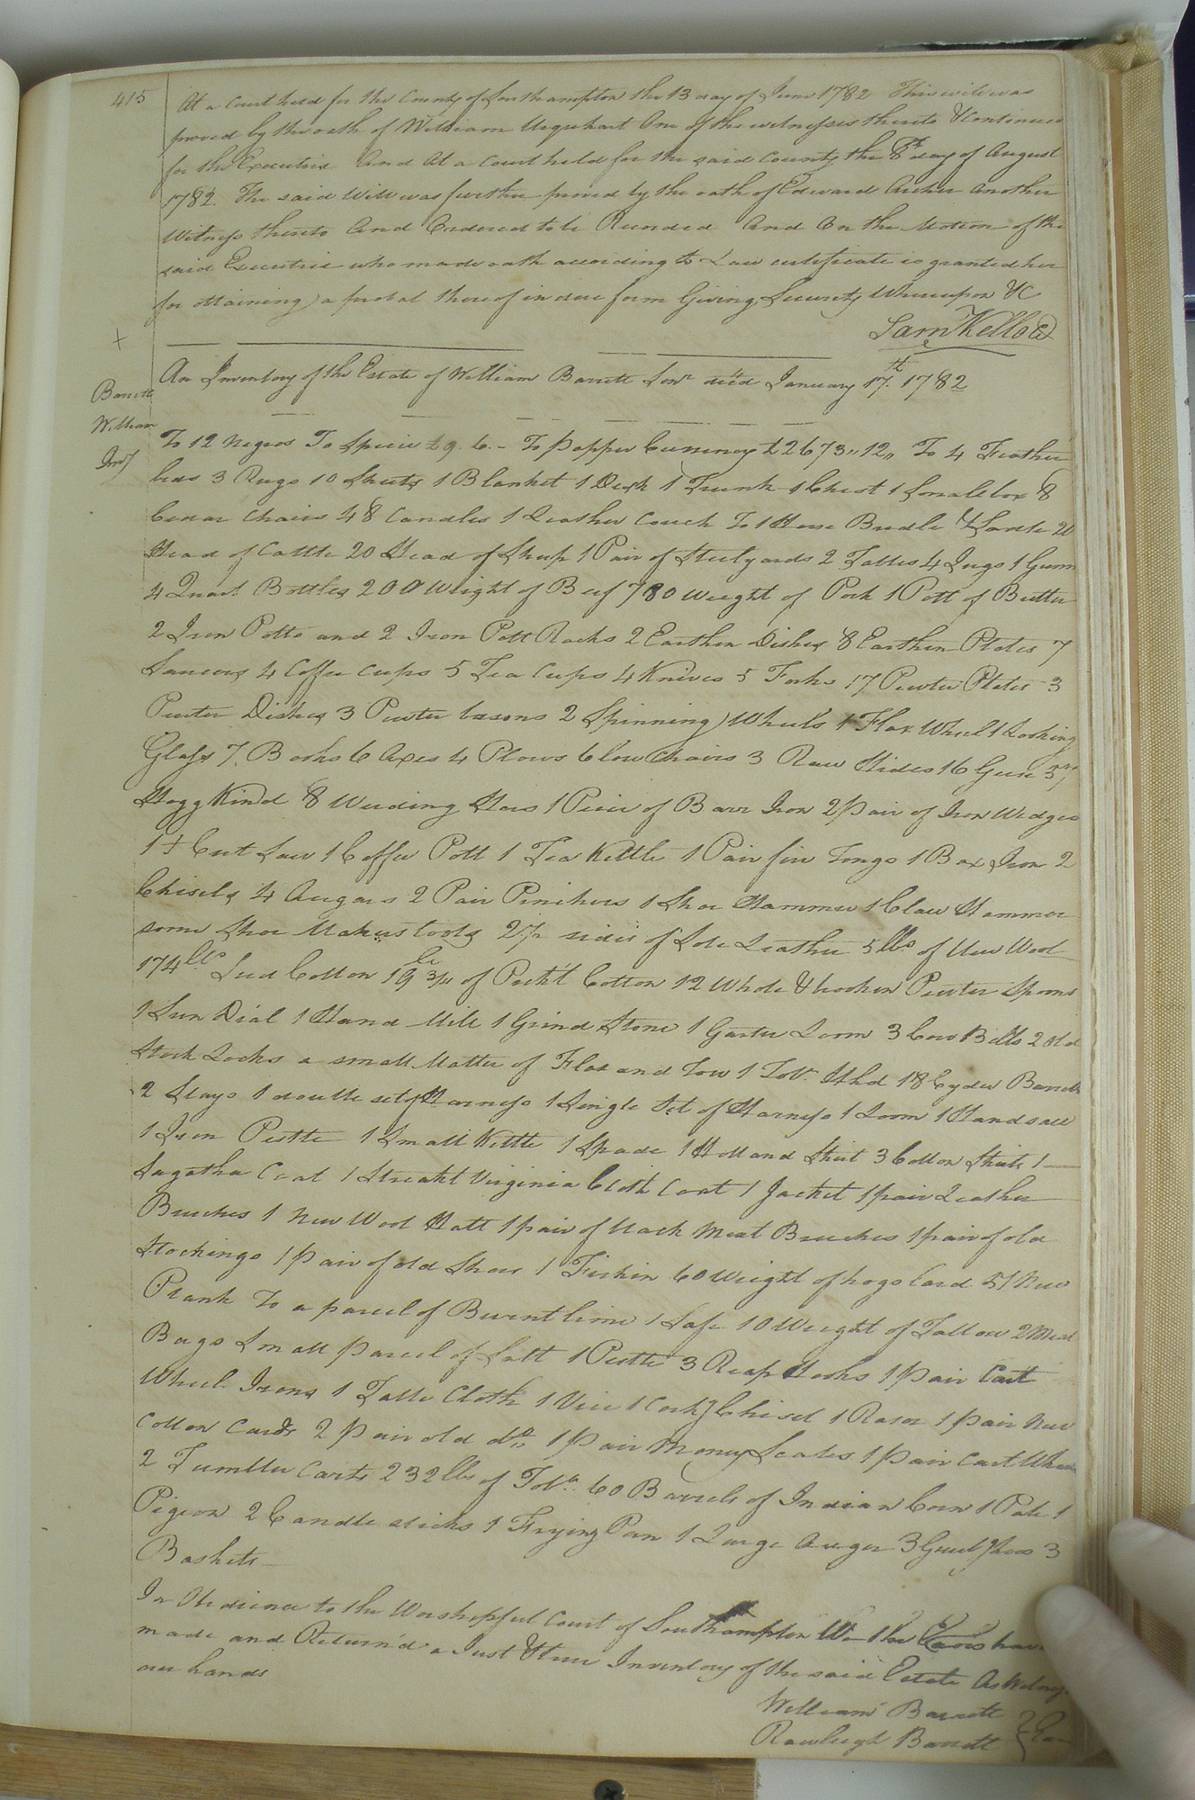 415
At a Court held for the County of Southampton the 13 day of June 1782 This will was
proved by the oath of William Urquhart One of the witnesses thereto & Continued
for the Executrix And At a Court held for the said County the 8th day of August
1782 The said Will was further proved by the oath of Edward Archer Another
Witness thereto And Ordered to be Recorded And On the Motion of the
said Executrix who made oath according to Law certificate is granted her
for obtaining a probat thereof in due form Giving Security Whereupon &C
Saml Kello C
An Inventory of the Estate of William Barrett Senr died January 17th 1782
Barrett
William
Invy
To 12 Negros To Specie £9.6.- To Papper Currency £2673"12" To 4 Feather
beds 3 Rugs 10 Sheets 1 Blanket 1 Desk 1 Trunk 1 Chest 1 Small box 8
Cenar Chairs 48 Candles 1 Leather Couch To 1 Horse Bridle & Sadle 20
Head of Cattle 20 Head of Sheep 1 Pair of Steelyards 2 Tables 4 Jugs 1 Gunn
4 Quart Bottles 200 Weight of Beef 780 weight of Pork 1 Pott of Butter
2 Iron Potts and 2 Iron Pott Racks 2 Earthen Dishes 8 Earthen Plates 7
Saucers 4 Coffee Cups 5 Tea Cups 4 Knives 5 Forks 17 Pewter Plates 3
Pewter Dishes 3 Pewter basons 2 Spinning Wheels 1 Flax Wheel 1 Looking
Glass 7 Books 6 Axes 4 Plows 6 low Chairs 3 Raw Hides 16 Geese 37
Hogg Kind 8 Weeding Hoes 1 Piece of Barr Iron 2 pair of Iron Wedges
1 + Cut Saw 1 Coffee Pott 1 Tea Kettle 1 Pair fire Tongs 1 Box Iron 2
Chisels 4 Augars 2 Pair Pinchers 1 Shoe Hammer 1 Claw Hammer
some Shoe Makers tools 2½ sides of Sole Leather 5 lbs of New Wool
174 lbs Seed Cotton 19 3/4 lb of Pick't Cotton 12 Whole & broken Pewter Spoons
1 Sun Dial 1 Hand Mill 1 Grind Stone 1 Garter Loom 3 Cow Bells 2 Old
Stock Locks a small Matter of Flax and Tow 1 Tob. Hhd 18 Cyder Barrels
2 Slays 1 double set of Harness 1 Single Set of Harness 1 Loom 1 Handsaw
1 Iron Pestle 1 Small Kettle 1 Spade 1 Holland Shirt 3 Cotton Shirts 1
Sagatha Coat 1 Streakt Virginia Cloth Coat 1 Jacket 1 pair Leather
Breeches 1 New Wool Hatt 1 pair of black Breeches 1 pair of old
Stockings 1 Pair of old Shoes 1 Firkin 60 Weight of hogs lard 51 New
Plank To a parcel of Burnt lime 1 Safe 10 Weight of Tallow 2 Meal
Bags Small parcel of Salt 1 Pestle 3 Reap Hooks 1 pair Cart
Wheel Irons 1 Table Cloth 1 Vice 1 Corkg Chisel 1 Rasor 1 pair New
Cotton Cards 2 pair old do 1 pair Money Scales 1 pair Cart Wheels
2 Tumbler Carts 232 lbs of Tob. 60 Barrels of Indian Corn 1 Pale 1
Pigeon 2 Candle sticks 1 Frying Pan 1 Large Auger 3 Grubg Hoes 3
Baskets
In Obedience to the Worshipful Court of Southampton We the Exors have
made and Return'd a Just & true Inventory of the said Estate As Witness
our hands
William Barrett
Rawleigh Barrett